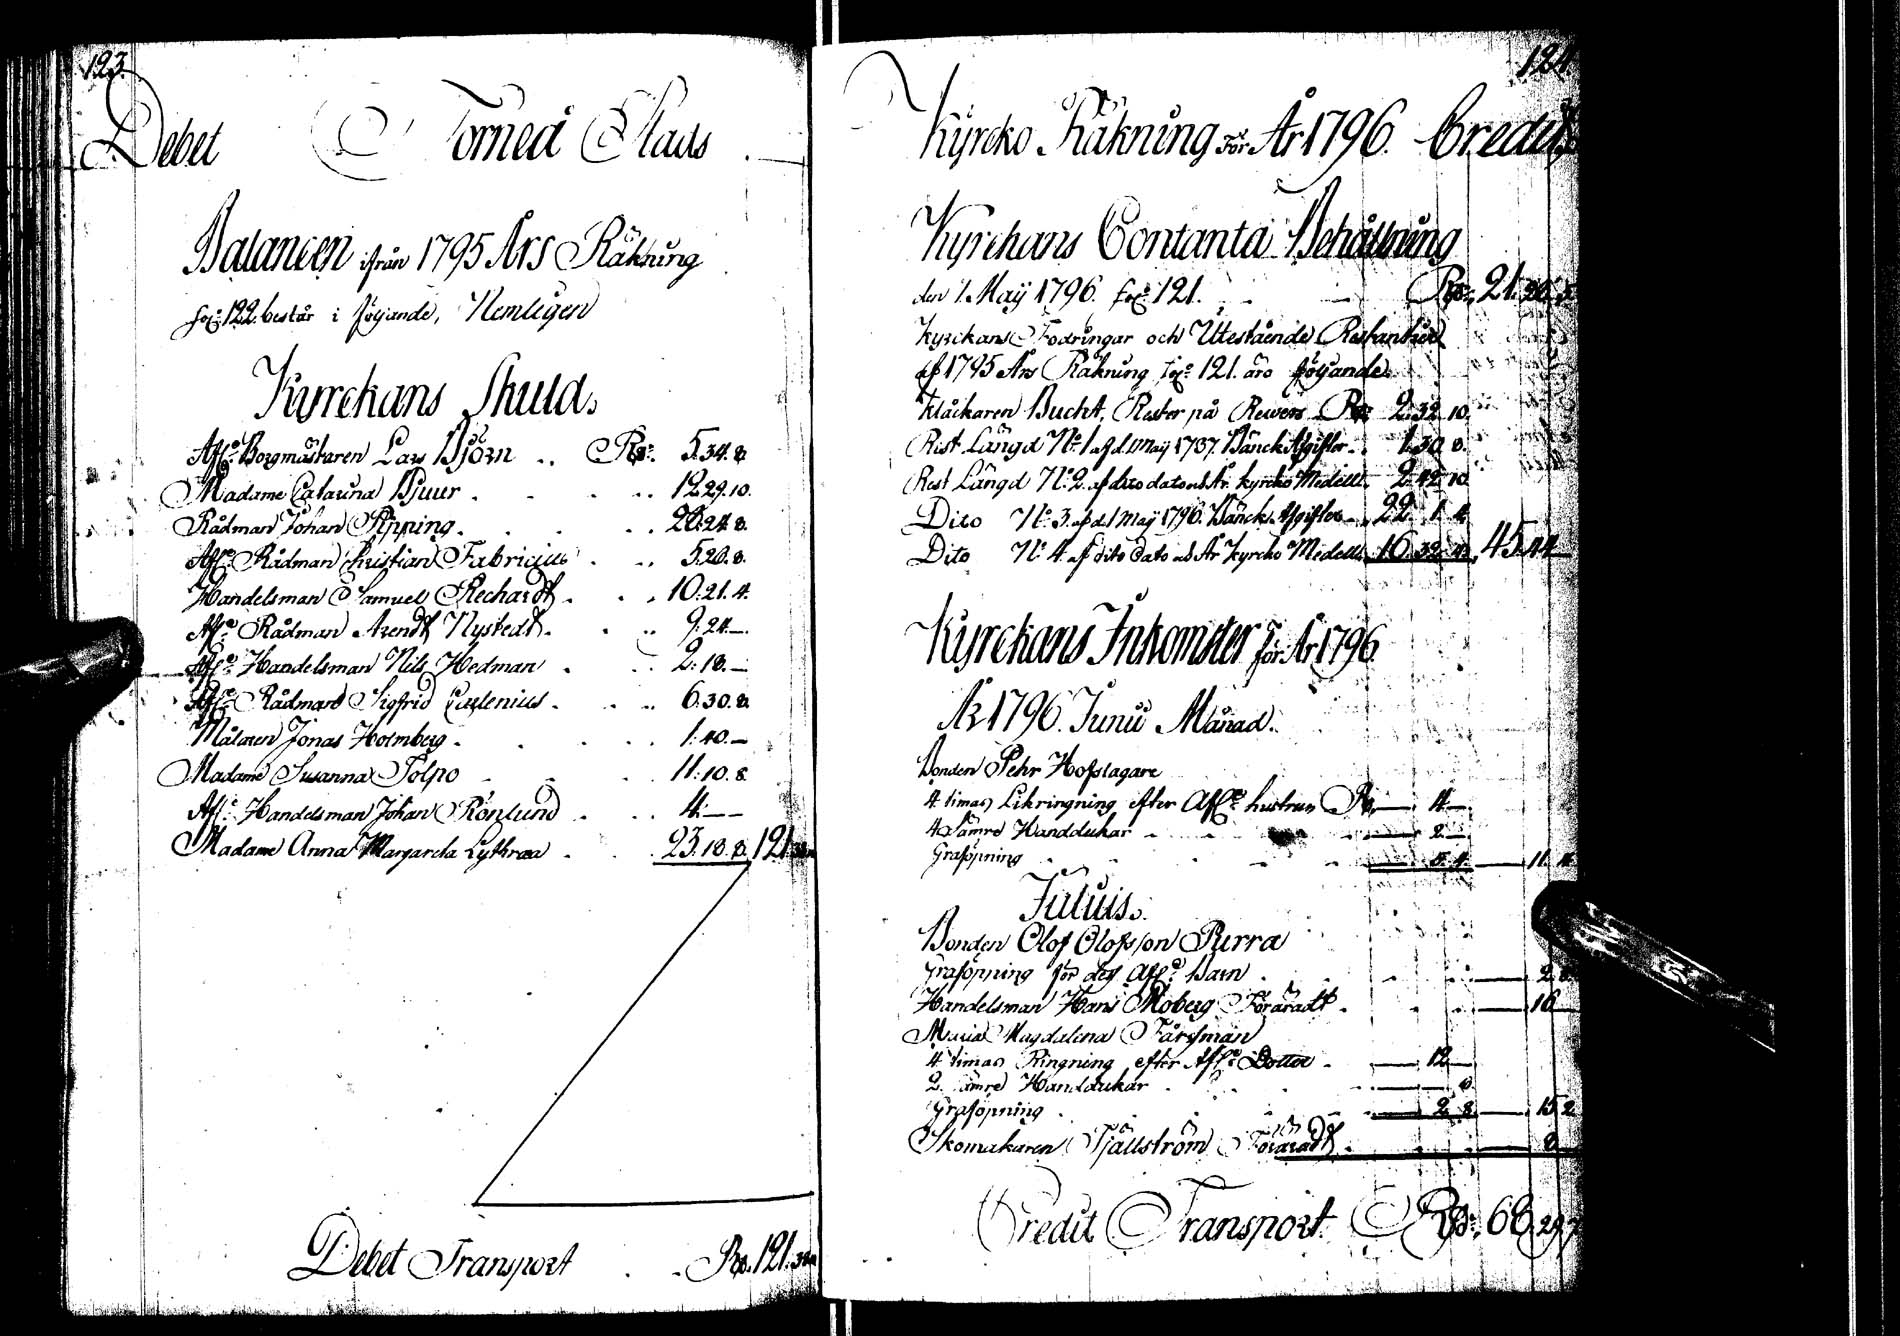 123.
Debet Torneå Stads
Balancen ifrån 1795 Års Räkning
fol: 122. består i föyande, Nemligen
Kyrckans Skuld.
Afl: Borgmästaren Lars Björn .. Rd: 5.34.8.
Madame Catarina Bjuur . . . .. 12.29.10.
Rådman Johan Pipping . . .. 26.24.8.
Afl: Rådman Christian Fabricius . .. 5.20.8.
Handelsman Samuel Rechardt . . . 10.21.4.
Afl: Rådman Arendt Nystedt . . .. 9.24.—.
Afl: Handelsman Nils Hedman . .. 2.18.—
Afl: Rådman Sigfrid Curlenius . . .. 6.30.8.
Målaren Jonas Holmberg . . . .. 1.40.—
Madame Susanna Tolpo . . .. 11.10.8.
Afl: Handelsman Johan Rönlund . .. 4.——
Madame Anna Margareta Lythræa . . 23.18.8. 121
Debet Transport . . Rd. 121.
124
Kyrcko Räkning För År 1796. Credit
Kyrckans Contanta Behållning
den 1. Maÿ 1796. fol: 121. . — Rd: 21.
Kyrckans Fodringar och Utestående Restantier
af 1795 Års Räkning fol: 121. äro föyande.
Klåckaren Bucht, Rester på Revers Rd: 2.32.10.
Rest Längd N:o 1 af d. 1 Maÿ 1737. Bänck Afgifter . . 1.30.8.
Rest Längd N:o 2. af dito dato och År. Kyrcko Medell. 2.42.10
Dito N:o 3. af d. 1 Maÿ 1796. Bänck Afgifter 22. 1. 4.
Dito N:o 4. af dito dato och År Kyrcko Medell. 16.32. 45.44
Kyrckans Inkomster för År 1796.
År 1796. Junii Månad.
Bonden Pehr Hofslagare
4 timas Likringning efter Afl:e hustrun Rd. — 4 —
4 Sämre Handdukar . . — 2 —
Graföpning . . . . — 5. 4. — 11. 4.
Julius.
Bonden Olof Olofsson Purra
Graföpning för dess Afl:e Barn . . . — 2.
Handelsman Hans Moberg Föräradt . . . — 16
Maria Magdalena Färsman
4 timas Ringning efter Afl:e Dotter . — 12 —
2. Sämre Handdukar . . —
Graföpning . . . . — 2. 8. — 15. 2
Skomakaren Fjällström Föräradt . . . — 8
Credit Transport. Rd: 68.29.7